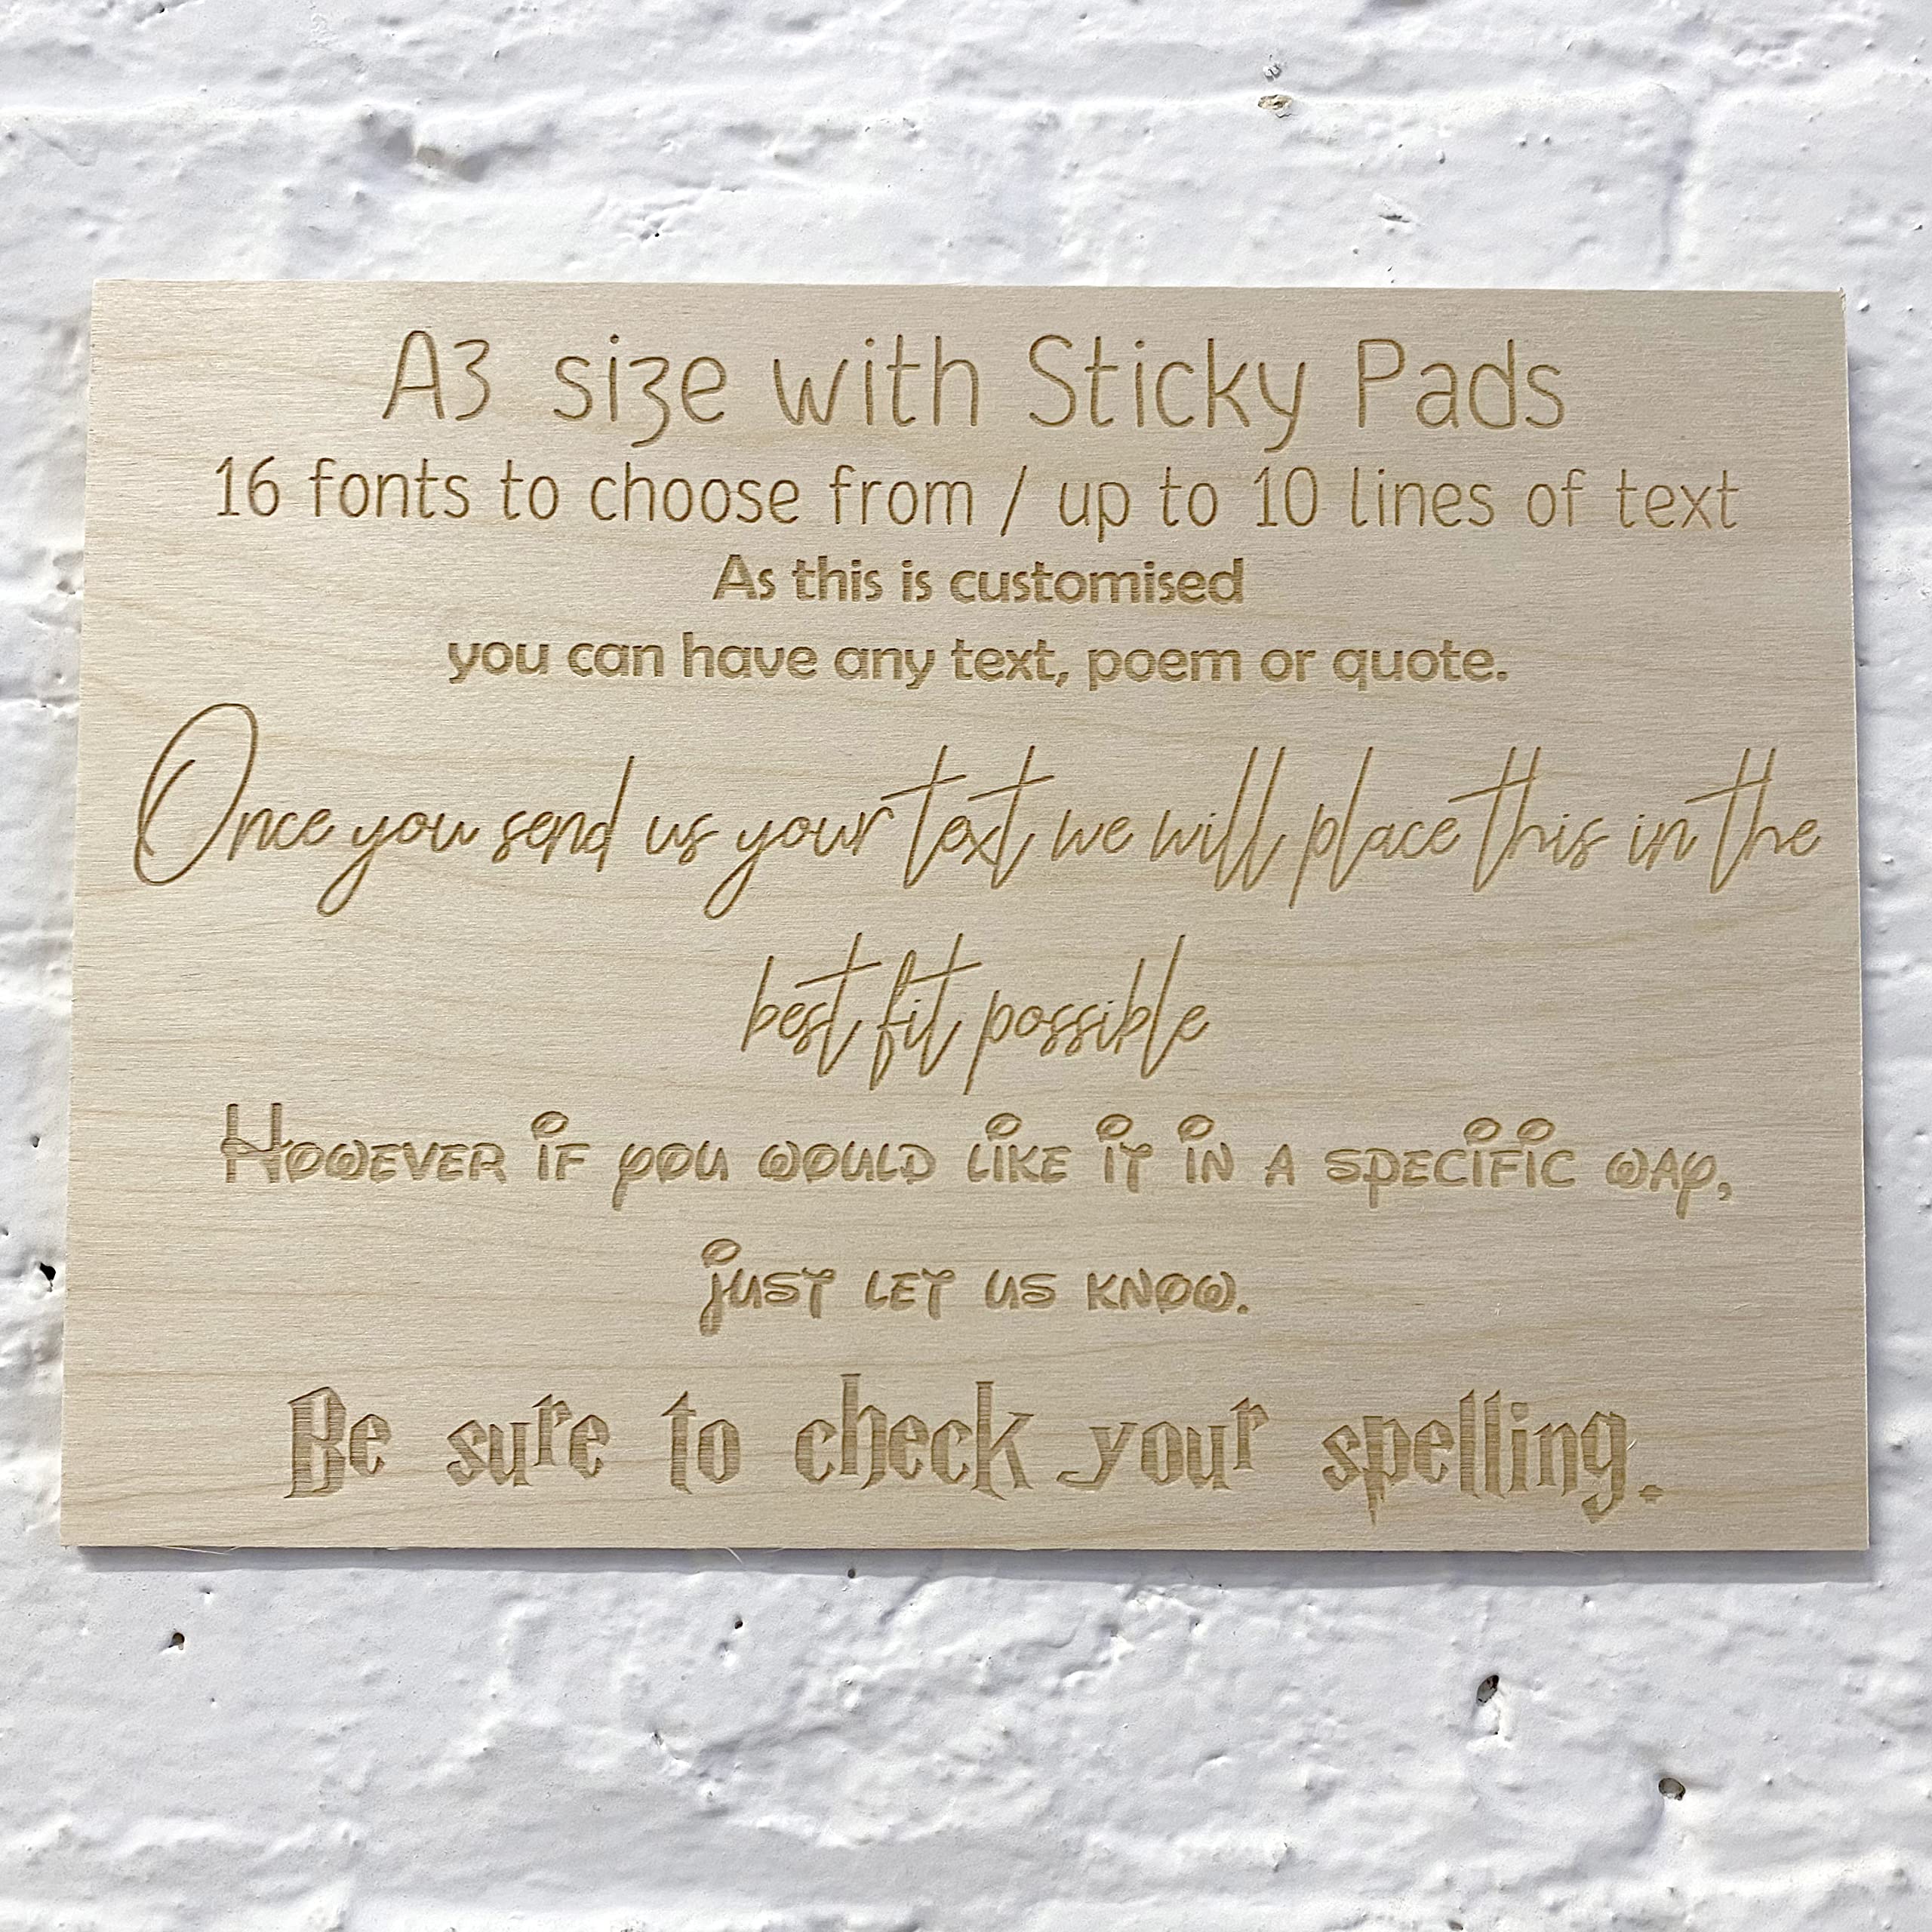 A3 size with Sticky Pads
16 fonts to choose from / up to 10 lines of text
As this is customised
you can have any text, poem or quote.
Once you send us your text we will place this in the
best fit possible
However if you would like it in a specific way,
just let us know.
Be sure to check your spelling.